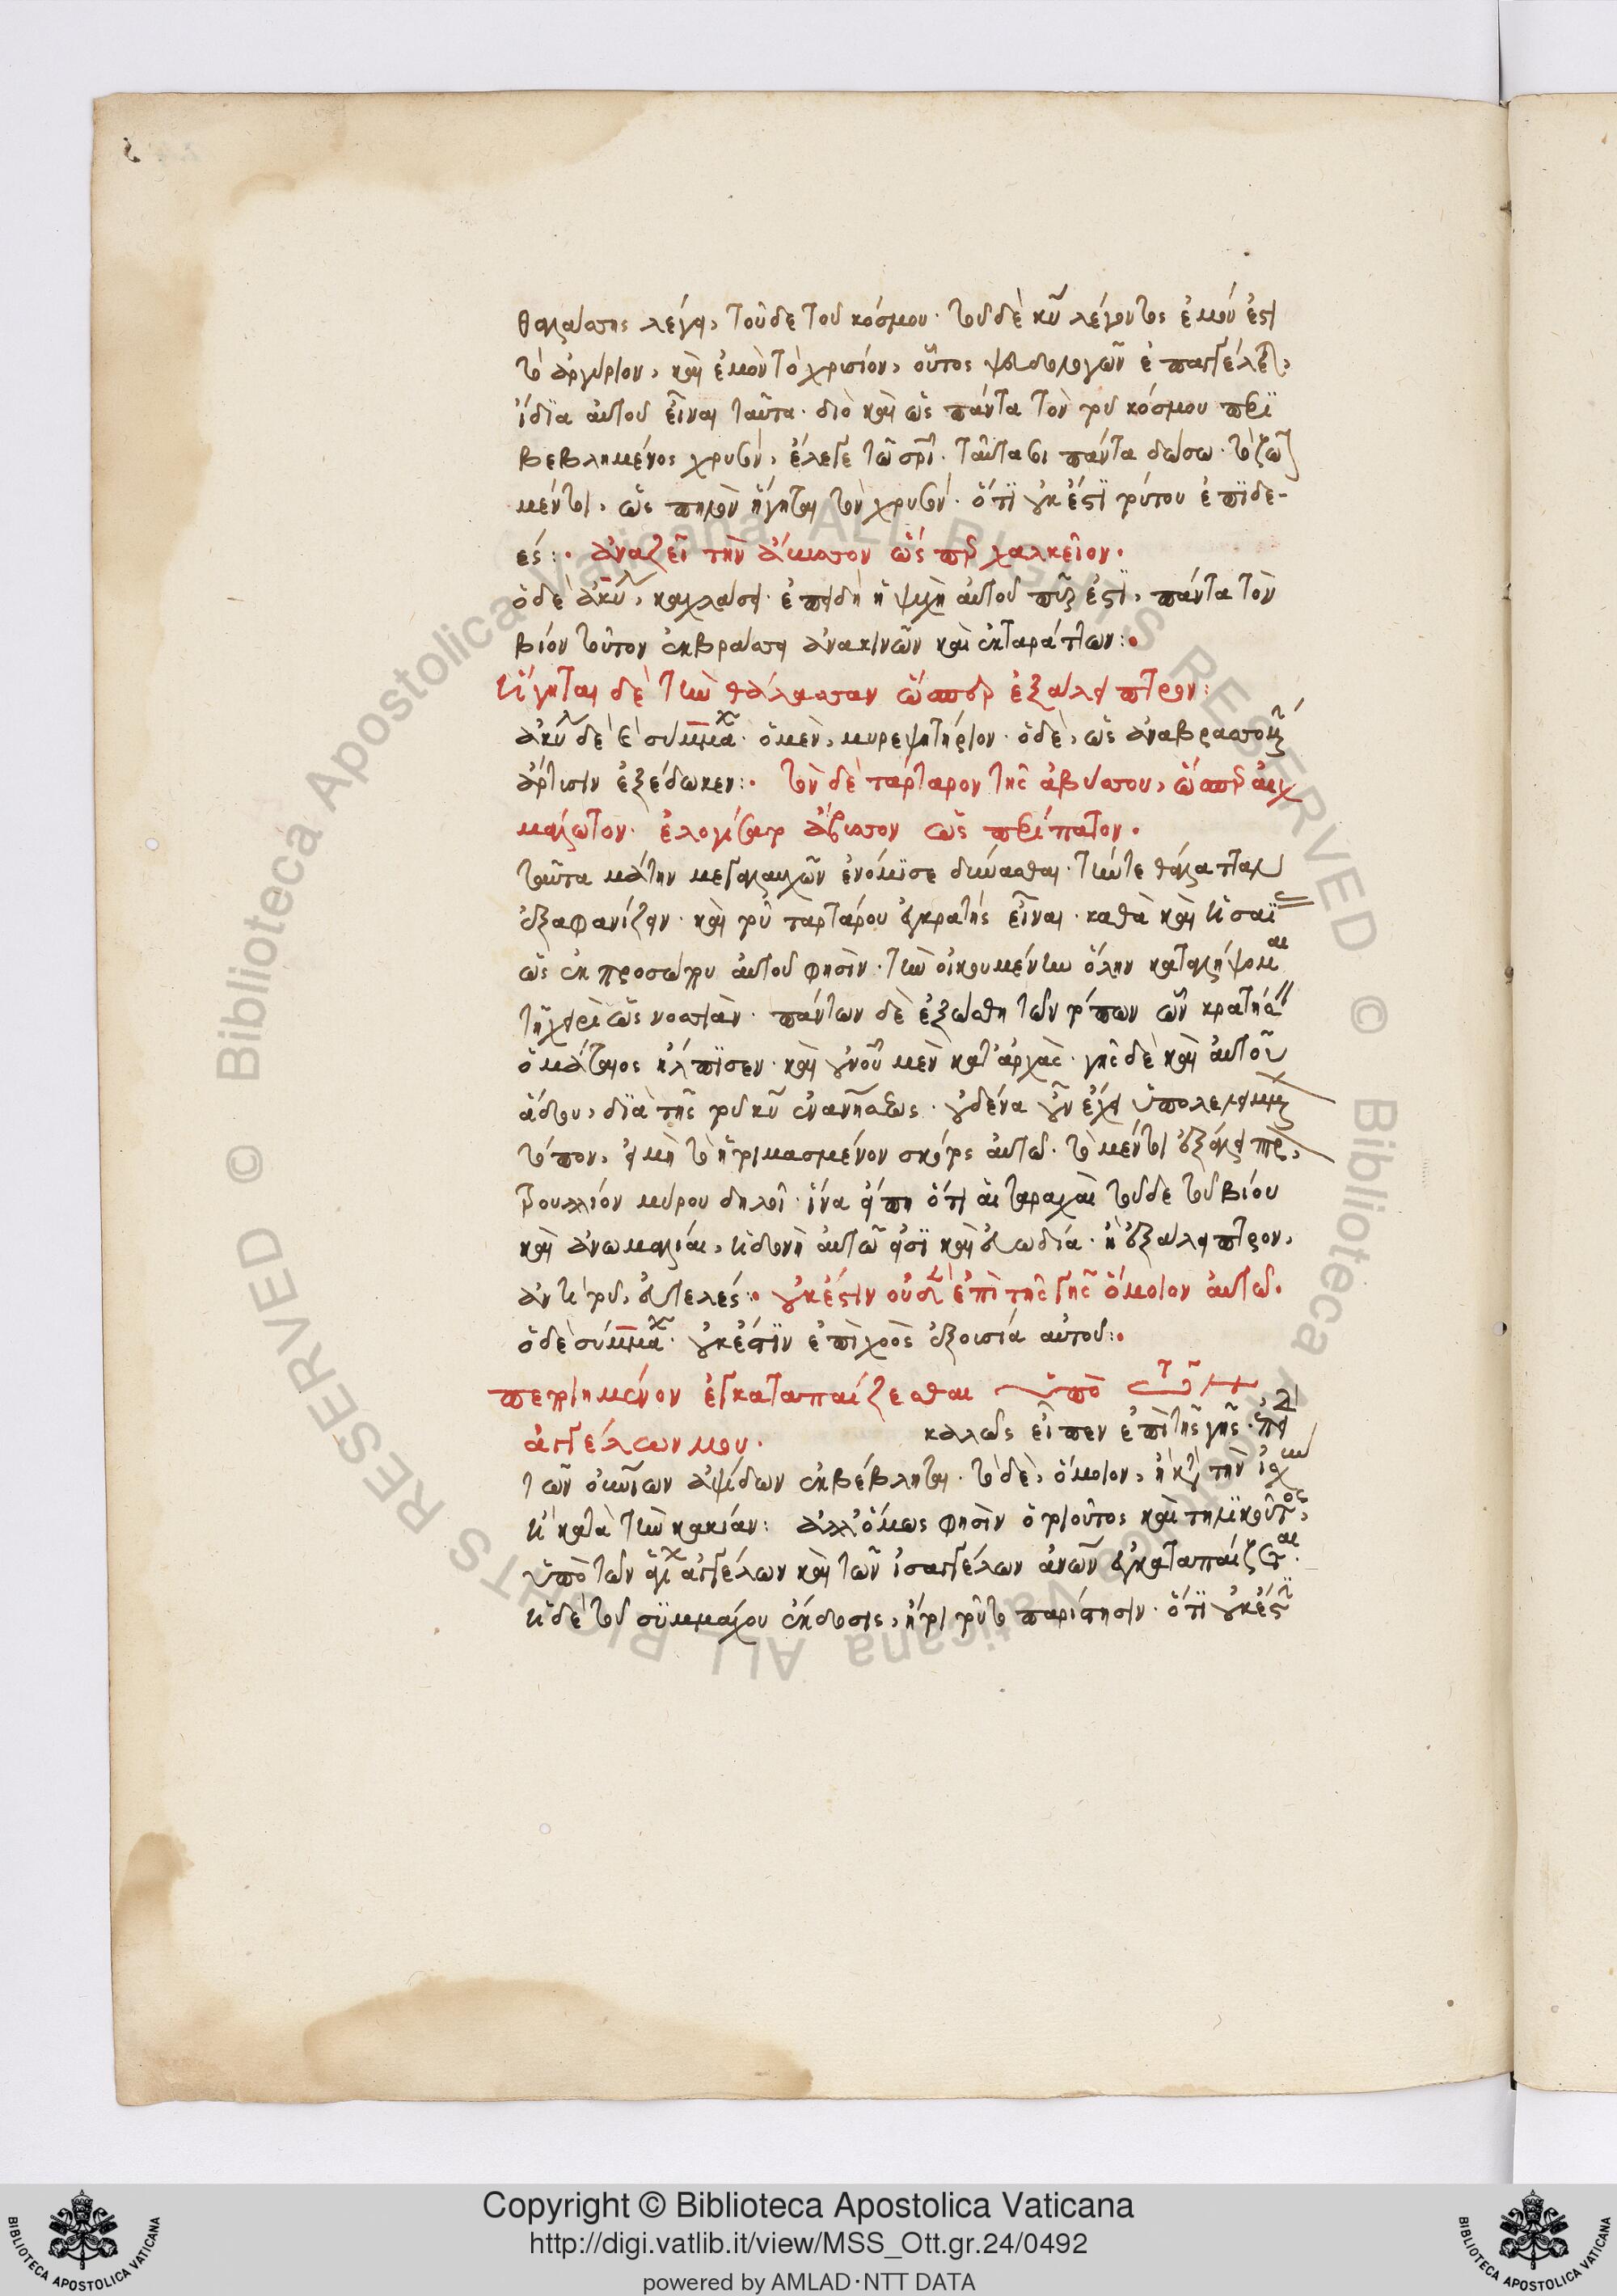 θαλάσσης λέγει, τοῦδε τοῦ κόσμου· τοῦ δὲ κυ λέγοντος ἐμόν ἐστι
τὸ ἀργύριον, καὶ ἐμὸν τὸ χρυσίον, οὗτος ψευδολογῶν ἐπαγγέλλεται,
ἴδϊα αὐτοῦ εἶναι ταῦτα· διὸ καὶ ὡς πάντα τὸν τοῦ κόσμου περϊ
βεβλημένος χρυσὸν, ἔλεγε τῷ σρι· ταῦτα σοι πάντα δώσω· τὸ
μέντοι, ὡς πηλὸν ἥγηται τὸν χρυσόν· ὅτϊ οὐκ ἔστϊ τούτου ἐπϊδε-
ές:· ἀναζεῖ τὴν ἄβυσσον ὥσπερ χαλκεῖον·
ὁ δὲ ἀκυλ, καχλάσει· ἐπειδὴ ἡ ψυχὴ αὐτοῦ πῦρ ἐστϊ, πάντα τὸν
βίον τοῦτον ἐκβράσσει ἀνακινῶν καὶ ἐκταράττων:·
ἥγηται δὲ τὴν θάλασσαν ὥσπερ ἐξάλειπτρον:
ἀκυλ δὲ καὶ συμμαχ· ὁ μὲν, μυρεψητήριον· ὁ δὲ, ὡς ἀναβρασσομεν
ἄρτισιν ἐξέδωκεν:· τὸν δὲ τάρταρον τῆς ἀβύσσου, ὥσπερ αἰχ
μάλωτον· ἐλογίσατο ἄβυσσον ὡς περίπατον·
ταῦτα μάτην μεγαλαυχῶν ἐνόμϊσε δύνασθαι· τήν τε θάλατταν
ἐξαφανίζειν· καὶ τοῦ ταρτάρου ἐγκρατὴς εἶναι· καθὰ καὶ ἡσαϊ
ὡς ἐκ προσώπου αὐτοῦ φησὶν· τὴν οἰκουμένην ὅλην καταλήψομαι
τῇ χειρὶ ὡς νοσσιὰν· πάντων δὲ ἐξώσθη τῶν τόπων ὧν κρατῆσαι
ὁ μάταιος ἤλπϊσεν· καὶ οὐνοῦ μὲν κατ' ἀρχὰς· γῆς δὲ καὶ αὐτοῦ
ἅδου, δϊὰ τῆς τοῦ κυ ἐνανησεως· οὐδένα οὖν ἔχει ὑπολελειμμεν
τόπον, εἰ μὴ τὸ ἡτοιμασμένον σκότος αὐτῷ· τὸ μέντοι ἐξάλειπτρ,
βουλλίον μύρου δηλοῖ· ἵνα εἴπῃ ὅτι αἱ ταραχαὶ τοῦδε τοῦ βίου
καὶ ἀνωμαλίαι, ἡδονὴ αὐτῷ εἰσϊ καὶ εὐωδία· ἢ ἐξάλειπτρον,
ἀντὶ τοῦ, εὐτελές:· οὐκ ἔστιν οὐδὲν ἐπὶ τῆς γῆς ὅμοιον αὐτῷ·
ὁ δὲ συμμαχ· οὐκ ἔστϊν ἐπὶ χοὸς ἐξουσία αὐτοῦ:·
πεποιημένον ἐγκαταπαίζεσθαι ὑπὸ τῶν
ἀγγέλων μου· καλῶς εἶπεν ἐπὶ τῆς γῆς·
τῶν οὐνίων ἁψίδων ἐκβέβληται· τὸ δὲ, ὅμοιον, ἢ κατὰ τὴν ἰσχὺν
ἢ κατὰ τὴν κακίαν: ἀλλ' ὅμως φησὶν ὁ τοιοῦτος καὶ τηλϊκοῦτος,
ὑπὸ τῶν ἀγγέλων καὶ τῶν ἰσαγγέλων ἀνων ἐγκαταπαίζεται·
ἡ δὲ τοῦ συμμάχου ἔκδοσις, ἤτοι τοῦτο παρίστησιν· ὅτϊ οὐκ ἔστϊ
Copyright © Biblioteca Apostolica Vaticana
http://digi.vatlib.it/view/MSS_Ott.gr.24/0492
powered by AMLAD·NTT DATA